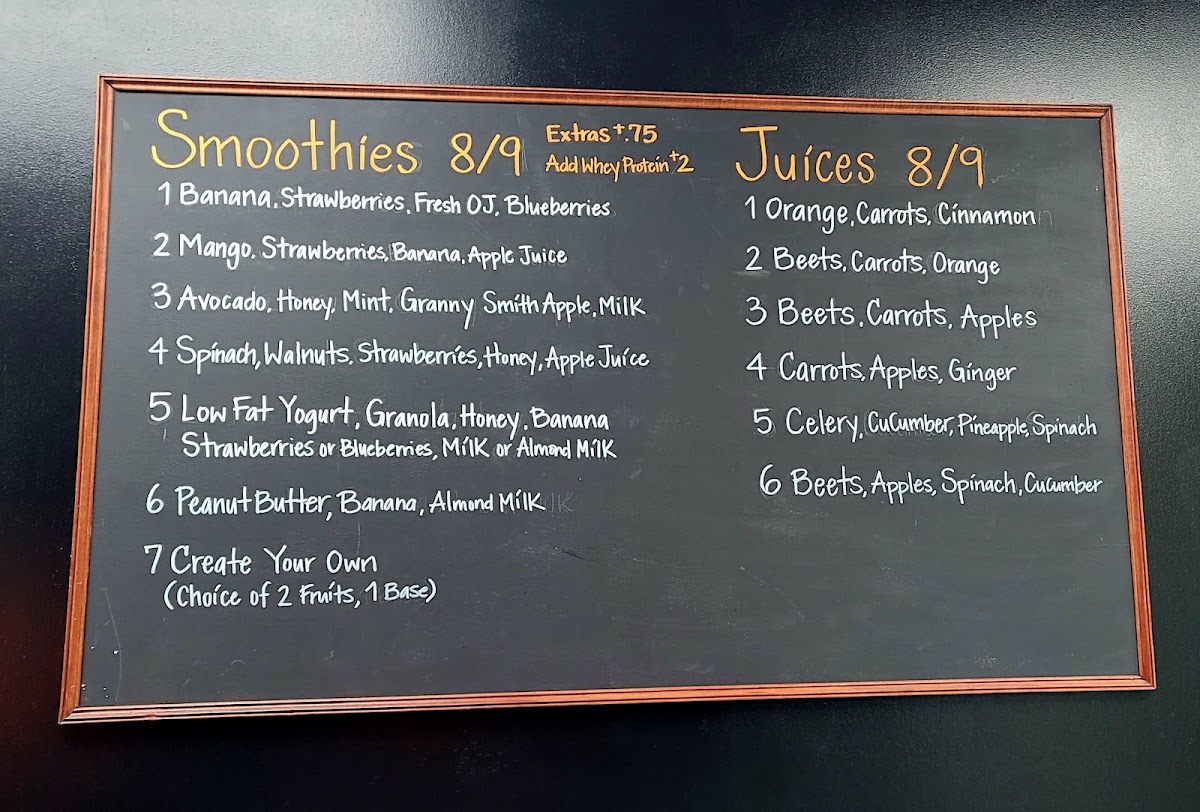 Smoothies 8/9
Extras +.75
Add Whey Protein +2
1 Banana, Strawberries, Fresh OJ, Blueberries
2 Mango, Strawberries, Banana, Apple Juice
3 Avocado, Honey, Mint, Granny Smith Apple, Milk
4 Spinach, Walnuts, Strawberries, Honey, Apple Juice
5 Low Fat Yogurt, Granola, Honey, Banana
Strawberries or Blueberries, Milk or Almond Milk
6 Peanut Butter, Banana, Almond Milk
7 Create Your Own
(Choice of 2 Fruits, 1 Base)
Juices 8/9
1 Orange, Carrots, Cinnamon
2 Beets, Carrots, Orange
3 Beets, Carrots, Apples
4 Carrots, Apples, Ginger
5 Celery, Cucumber, Pineapple, Spinach
6 Beets, Apples, Spinach, Cucumber